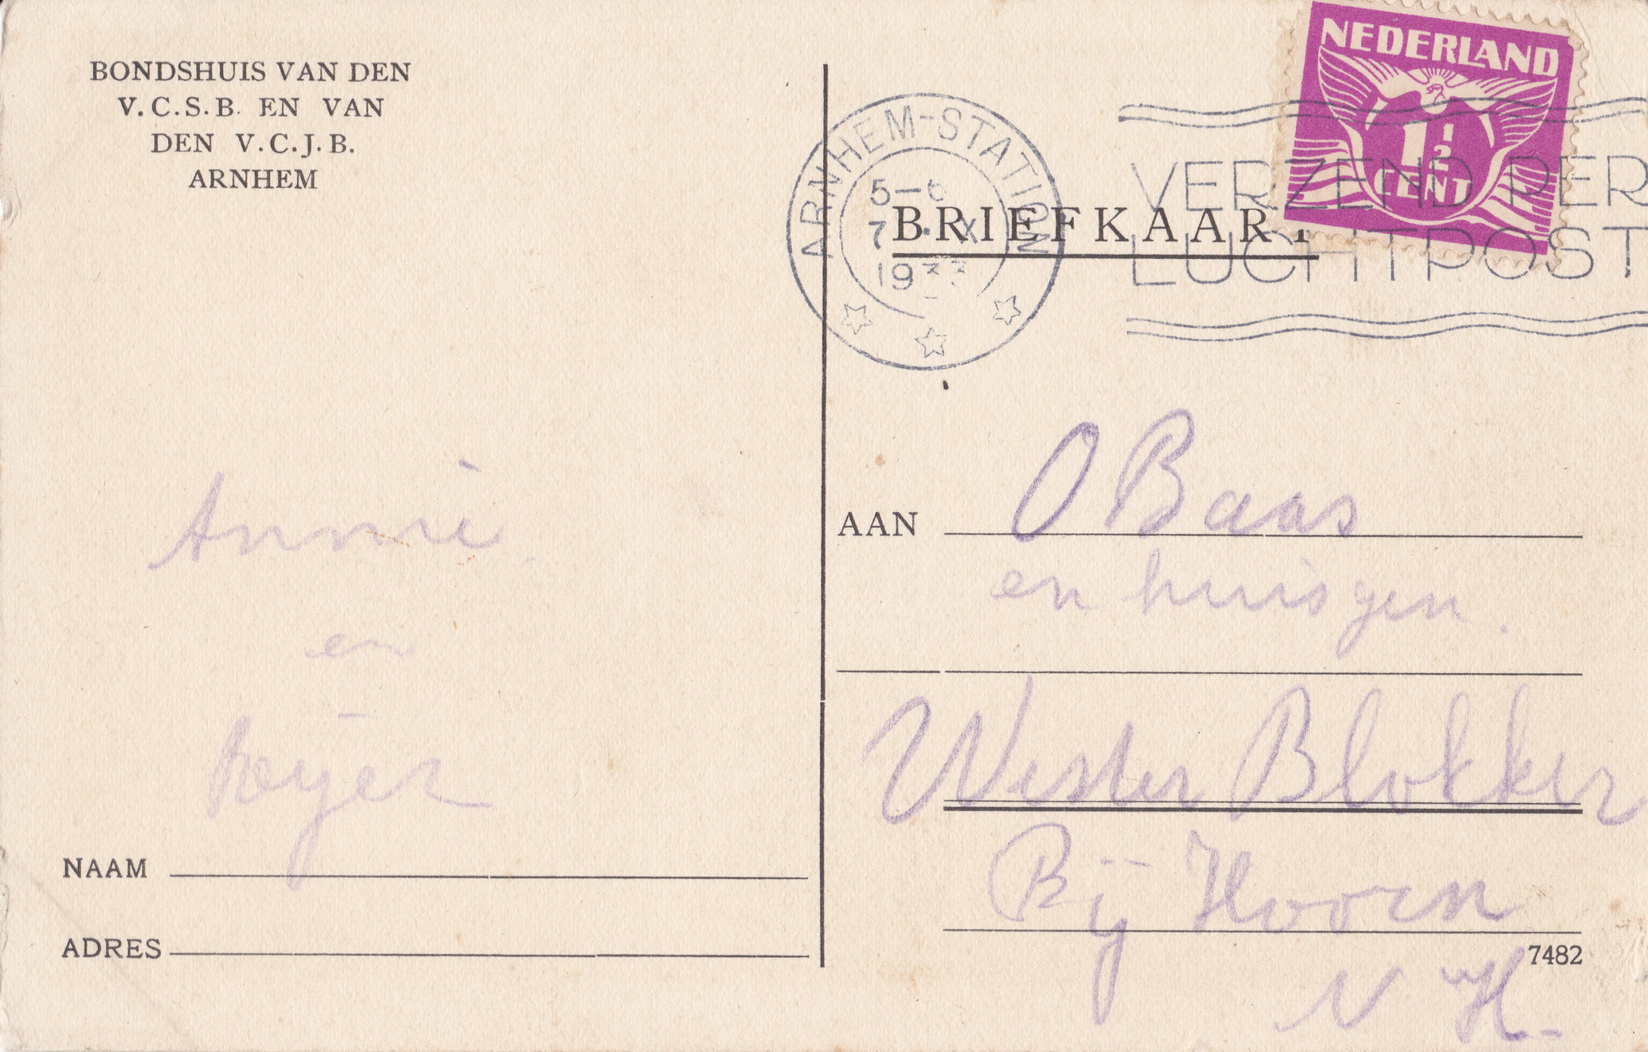 BONDSHUIS VAN DEN
V.C.S.B. EN VAN
DEN V.C.J.B.
ARNHEM
NEDERLAND
1½
CENT
ARNHEM-STATION
5-6
7
1933
VERZEND PER
LUCHTPOST
BRIEFKAART
AAN O Baas
en huisgen.
Wester Blokker
Bij Hoorn
N H.
Annie
en
NAAM
ADRES
7482